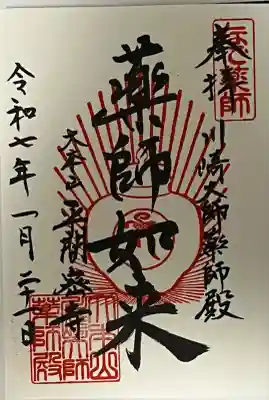 奉拝
川崎大師薬師殿
薬師如来
大本山平間寺
令和七年一月二十一日